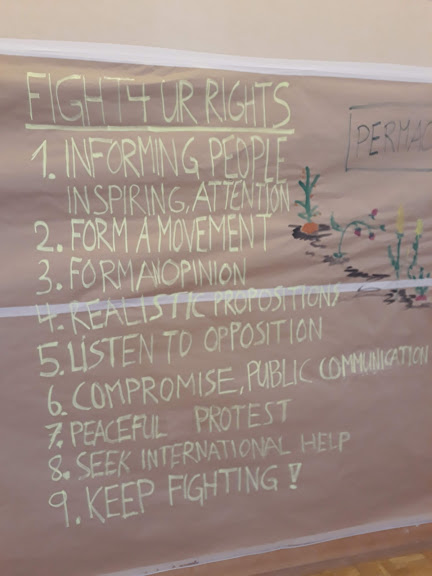 FIGHT 4 UR RIGHTS
1. INFORMING PEOPLE
INSPIRING, ATTENTION
2. FORM A MOVEMENT
3. FORM AN OPINION
4. REALISTIC PROPOSITIONS
5. LISTEN TO OPPOSITION
6. COMPROMISE, PUBLIC COMMUNICATION
7. PEACEFUL PROTEST
8. SEEK INTERNATIONAL HELP
9. KEEP FIGHTING!
PERMAC